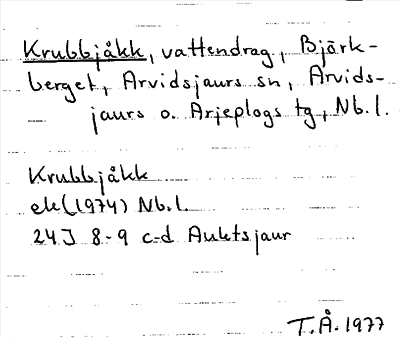 Krubbjåkk, vattendrag, Björk-
berget, Arvidsjaurs sn, Arvids-
jaurs o. Arjeplogs tg, Nb.l.
Krubbjåkk
ek(1974) Nb.l.
24J 8-9 c-d Auktsjaur
T.Å.1977